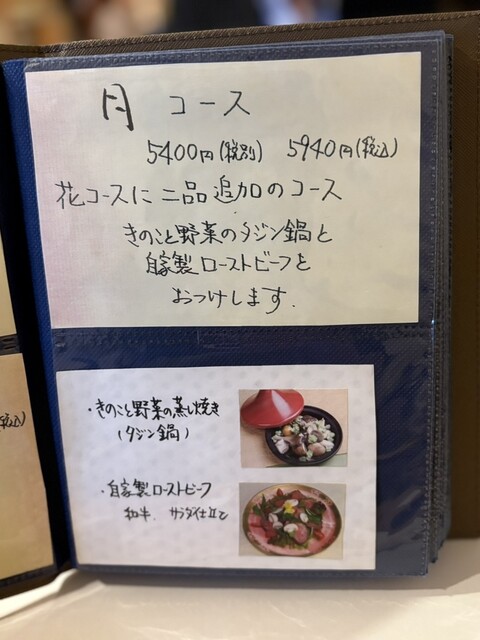 月 コース
5400円(税別) 5940円(税込)
花コースに二品追加のコース
きのこと野菜のタジン鍋と
自家製ローストビーフを
おつけします.
・きのこと野菜の蒸し焼き
(タジン鍋)
・自家製ローストビーフ
和牛. サラダ仕立て
税込)